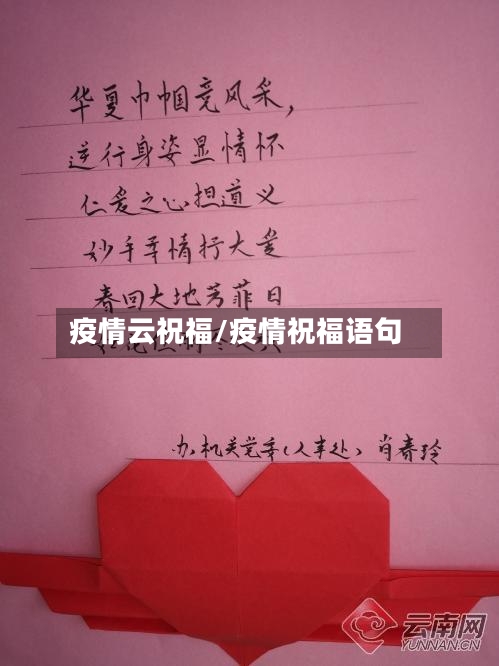 华夏巾帼竞风采，
逆行身姿显情怀
仁爱之心担道义
妙手真情抒大爱
春回大地芳菲日
疫情云祝福/疫情祝福语句
办机关党委（人事处） 肖春玲
云南网
YUNNAN.CN